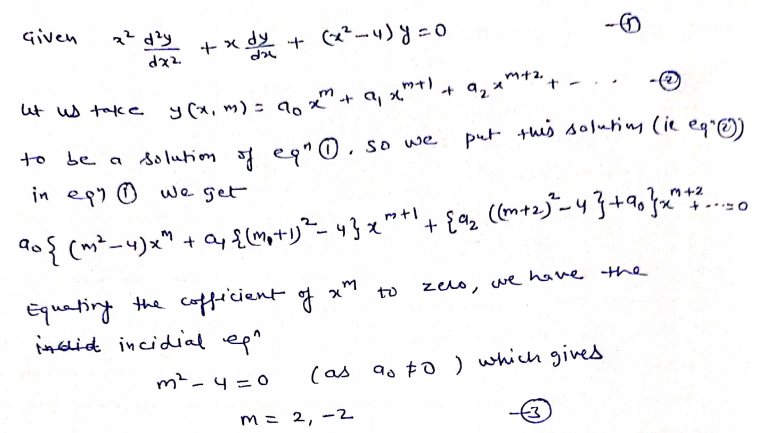 Given x² d²y/dx² + x dy/dx + (x²-4) y = 0 -①
let us take y(x, m) = a₀ x^m + a₁ x^{m+1} + a₂ x^{m+2} + - . . . -②
to be a solution of eqⁿ ①. so we put this solution (ie eqⁿ ②)
in eqⁿ ① we get
a₀{ (m²-4)x^m + a₁ {(m+1)² - 4} x^{m+1} + {a₂ ((m+2)² - 4 } + a₀} x^{m+2} + .... = 0
Equating the cofficient of x^m to zero, we have the
incidial eqⁿ
m² - 4 = 0 (as a₀ ≠ 0 ) which gives
m = 2, -2 -③